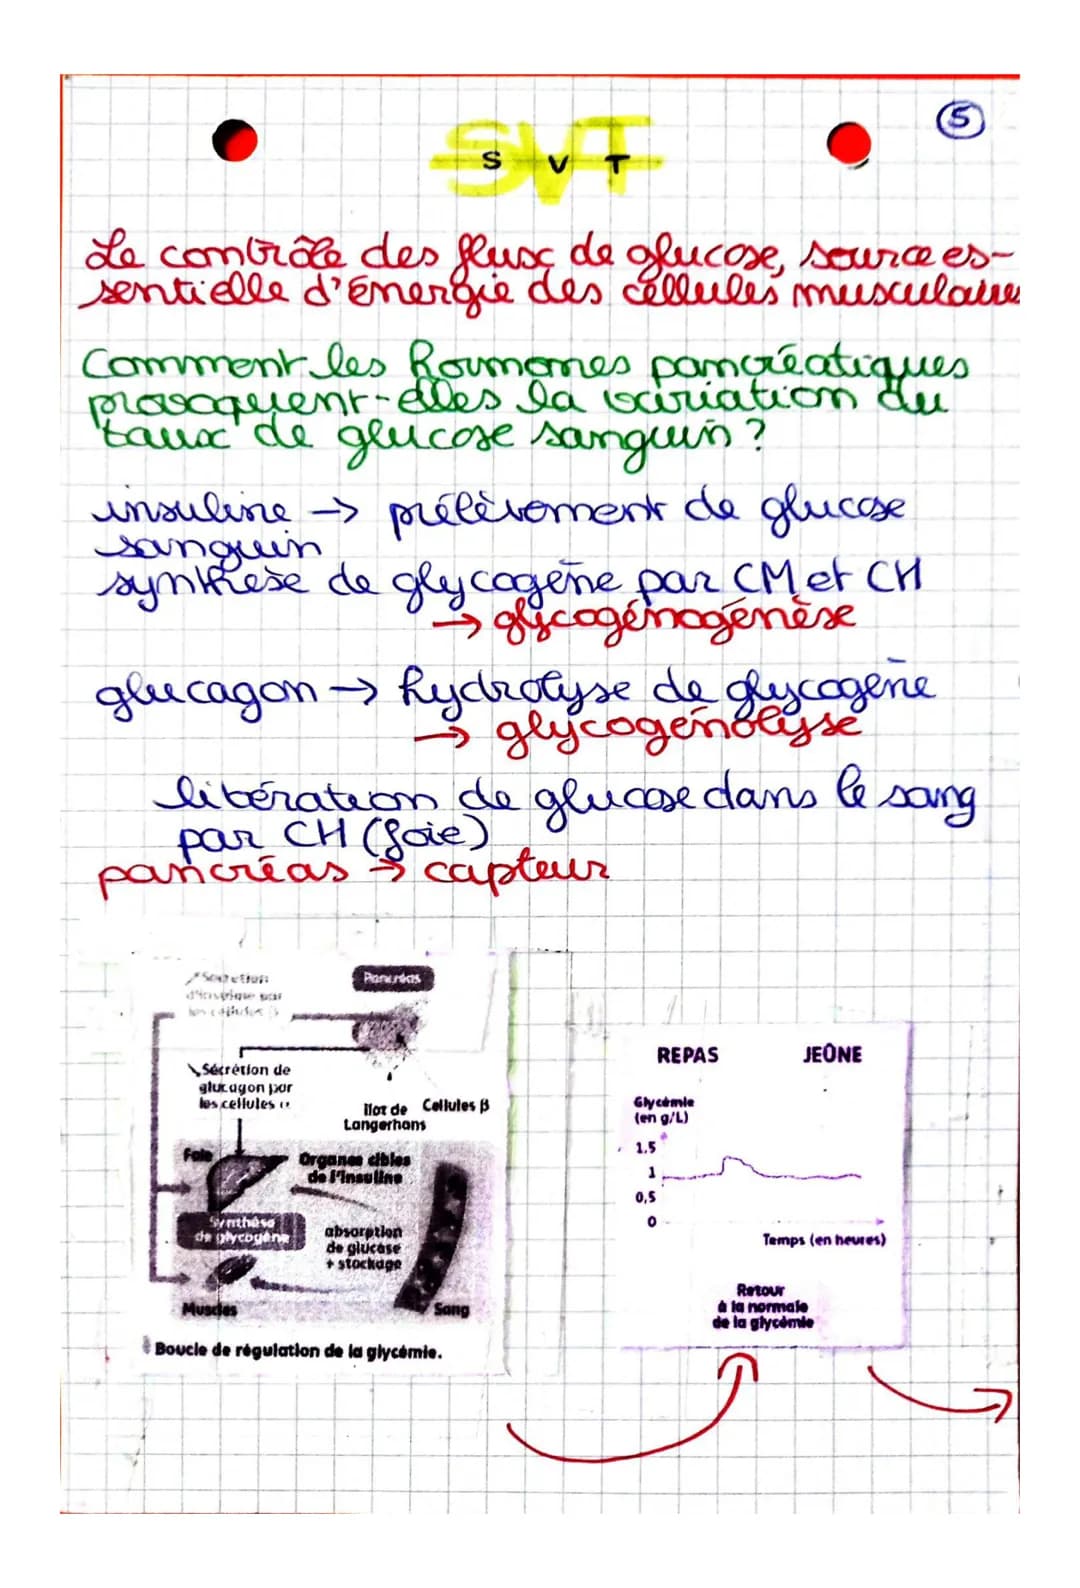 5
SVT
S V T
Le contrôle des flux de glucose, source es-
sentielle d'énergie des cellules musculaires
Comment les hormones pancréatiques
provoquent-elles la variation du
taux de glucose sanguin ?
insuline → prélèvement de glucose
sanguin
synthèse de glycogène par CM et CH
→ glycogénogénèse
glucagon → hydrolyse de glycogène
→ glycogénolyse
libération de glucose dans le sang
par CH (foie)
pancréas → capteur
Sécrétion
d'insuline par
les cellules β
Pancréas
Sécrétion de
glucagon par
les cellules α
Ilot de
Langerhans
Cellules β
Foie
Organes cibles
de l'insuline
Synthèse
de glycogène
absorption
de glucose
+ stockage
Muscles
Sang
Boucle de régulation de la glycémie.
REPAS JEÛNE
Glycémie
(en g/L)
1.5
1
0,5
0
Temps (en heures)
Retour
à la normale
de la glycémie